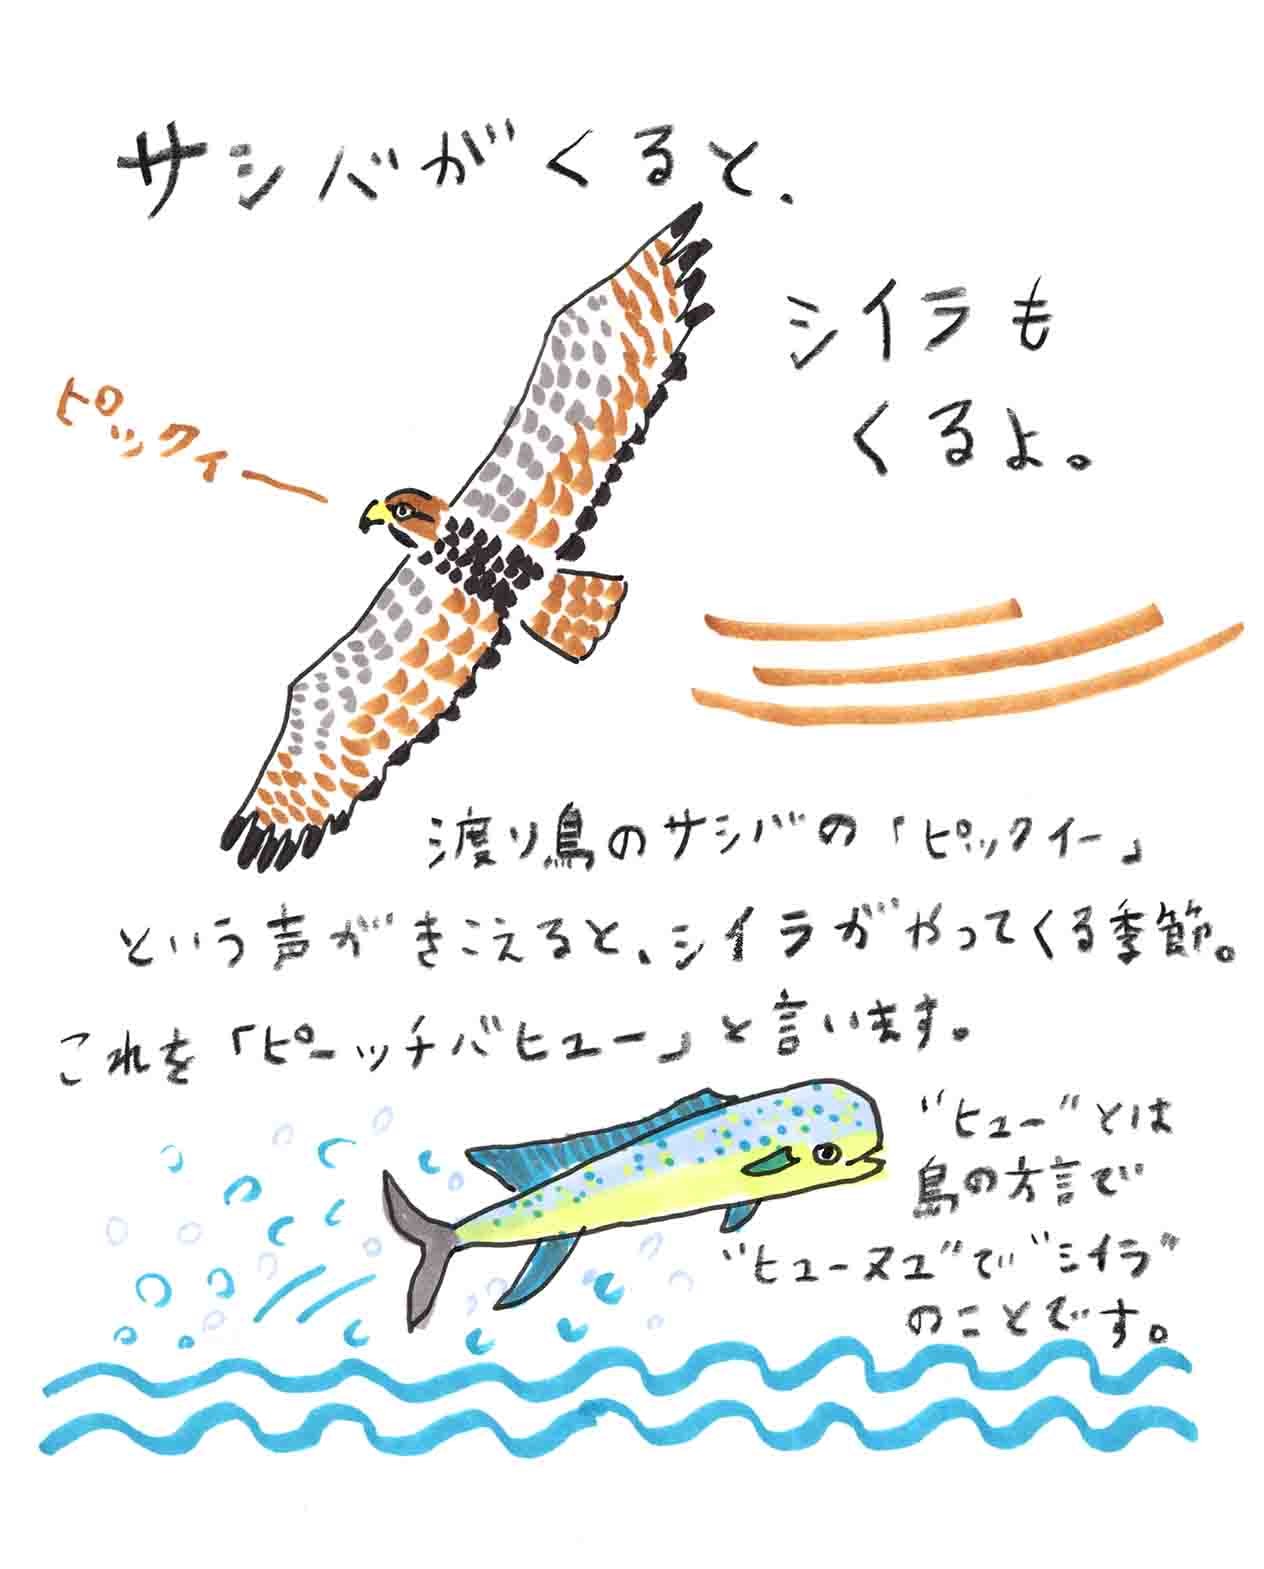 サシバがくると、
シイラも
くるよ。
ピックィー
渡り鳥のサシバの「ピックイー」
という声がきこえると、シイラがやってくる季節。
これを「ピーッチバヒュー」と言います。
"ヒュー"とは
島の方言で
"ヒューヌユ"で"シイラ"
のことです。